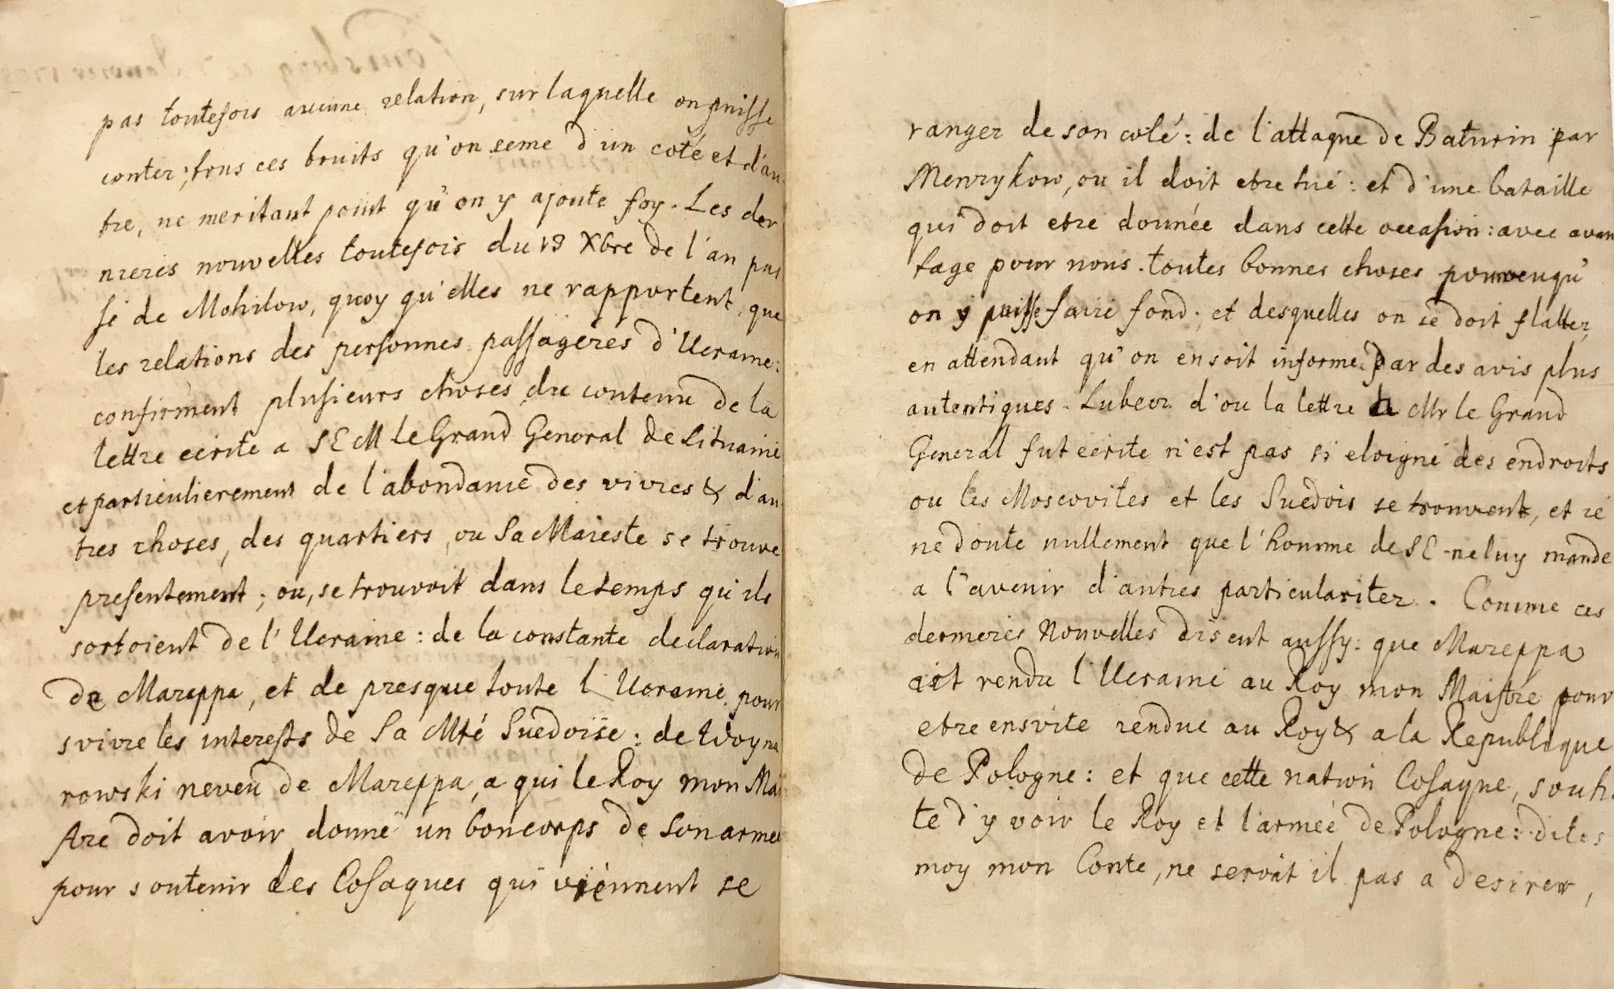 pas toutefois aucune relation, sur laquelle on puisse
conter; tous ces bruits qu'on seme d'un coté et d'au
tre, ne meritant point qu'on y ajoute foy. Les der
nieres nouvelles toutefois du 19 Xbre de l'an pas
sé de Mohilow, quoy qu'elles ne rapportent, que
les relations des personnes passageres d'Ucraine:
confirment plusieurs choses du contenu de la
lettre ecrite a S E M le Grand General de Lituanie
et particulierement de l'abondance des vivres & d'au
tres choses, des quartiers, ou Sa Maiesté se trouve
presentement; ou, se trouvoit dans le temps qu'ils
sortoient de l'Ucraine: de la constante declaration
de Mazeppa, et de presque toute l'Ucraine, pour
suivre les interests de Sa Mté Suedoise: de Woyna
rowski neveu de Mazeppa, a qui le Roy mon Mai
stre doit avoir donné un bon corps de son armée
pour soutenir les Cosaques qui viennent se
ranger de son coté: de l'attaque de Baturin par
Menzykow, ou il doit etre tué: et d'une bataille
qui doit etre donnée dans cette occasion: avec avan
tage pour nous. toutes bonnes choses pourveuqu'
on y puisse faire fond. et desquelles on se doit flatter,
en attendant qu'on en soit informé par des avis plus
autentiques. Lubecz d'ou la lettre a Mr le Grand
General fut ecrite n'est pas si eloigné des endroits
ou les Moscovites et les Suedois se trouvent, et je
ne doute nullement que l'homme de S E ne luy mande
a l'avenir d'autres particularitez. Comme ces
dernieres Nouvelles disent aussy: que Mazeppa
ait rendu l'Ucraine au Roy mon Maistre pour
etre ensuite rendue au Roy & a la Republique
de Pologne: et que cette nation Cosaque, souh
te d'y voir le Roy et l'armée de Pologne: dites
moy mon Conte, ne seroit il pas a desirer,